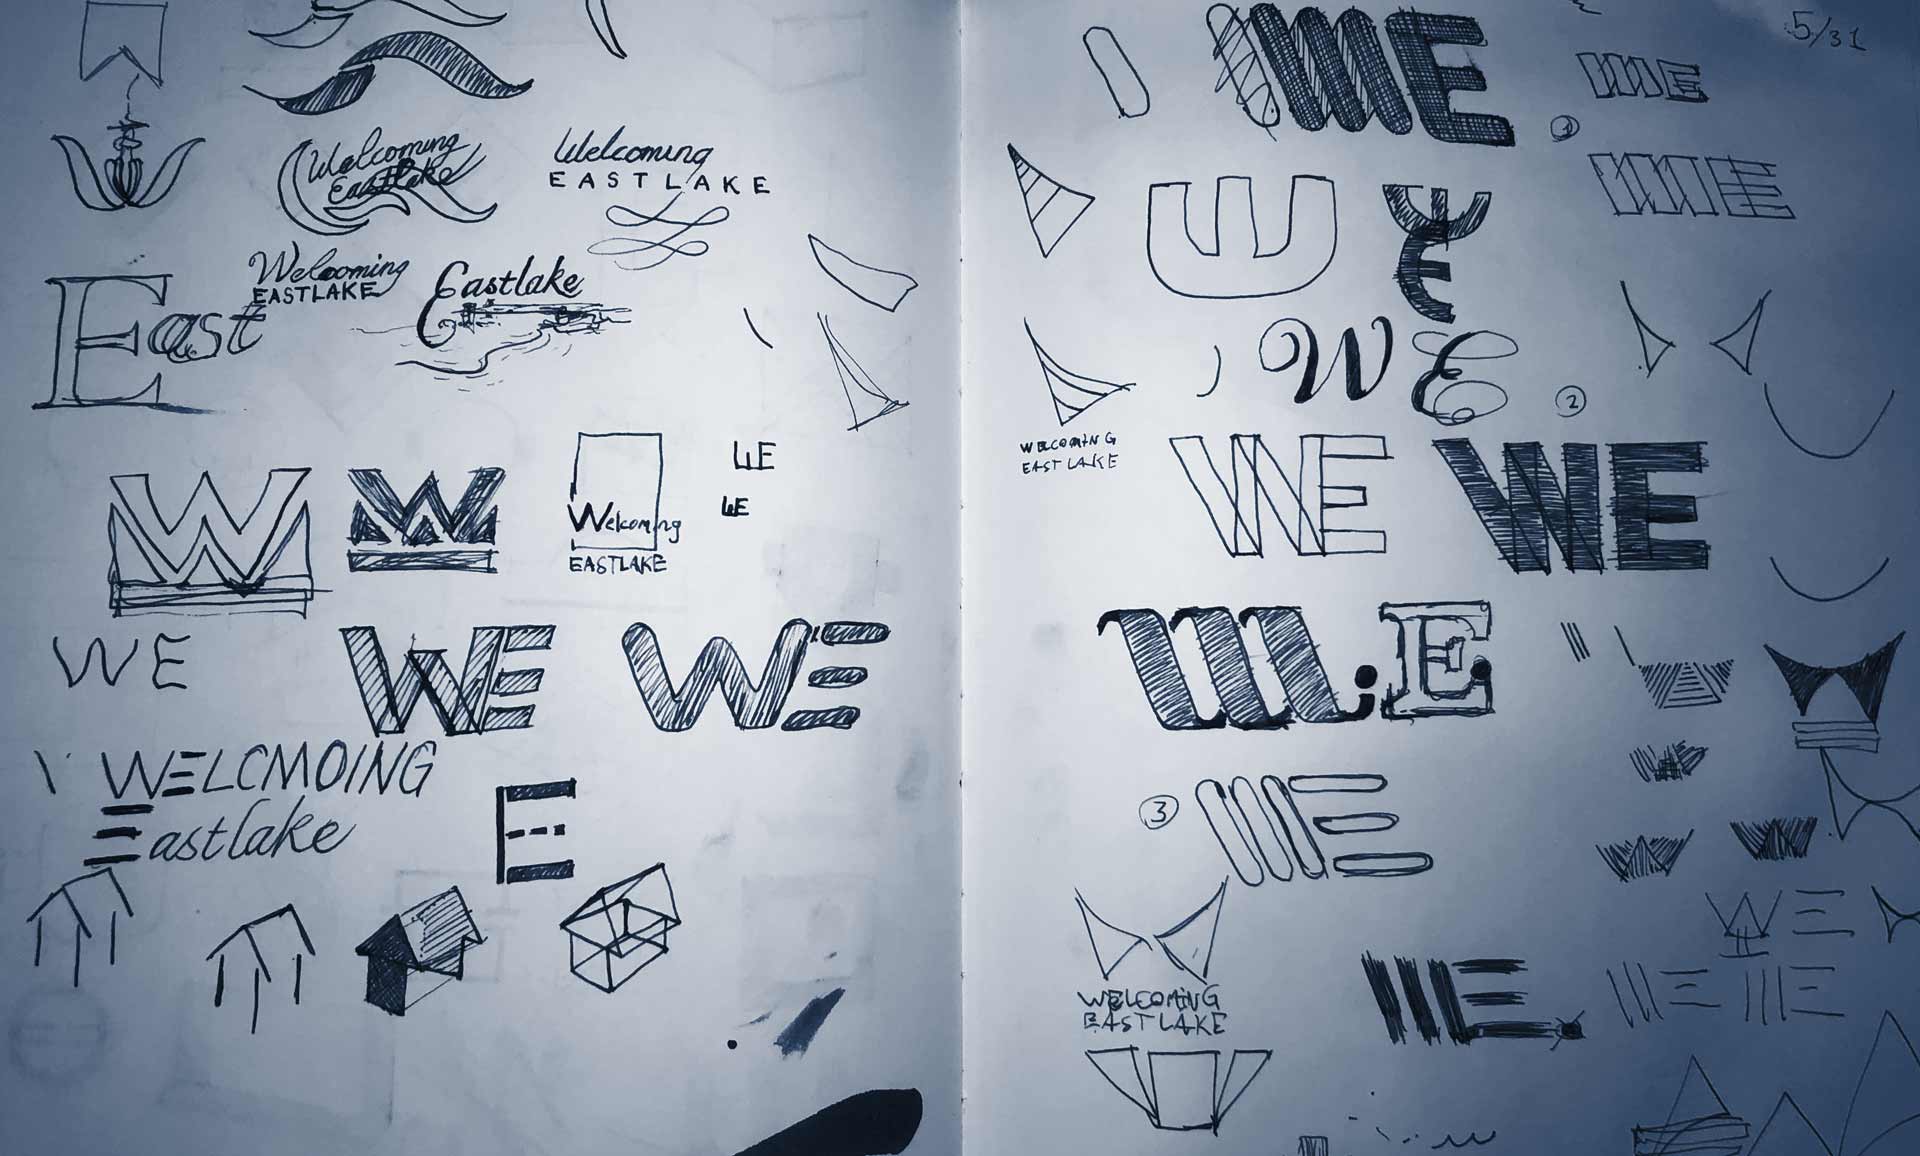 Welcoming
Eastlake
Welcoming
EASTLAKE
Welcoming
EASTLAKE
Eastlake
East
W
W
Welcoming
EASTLAKE
WE
WE
WE
WE
WE
WELCMOING
Eastlake
E
5/31
WE
WE
1
WE
WE
WE
W E
2
WELCOMING
EASTLAKE
WE
WE
WE
3
WE
WE
WELCOMING
EASTLAKE
WE
WE
WE